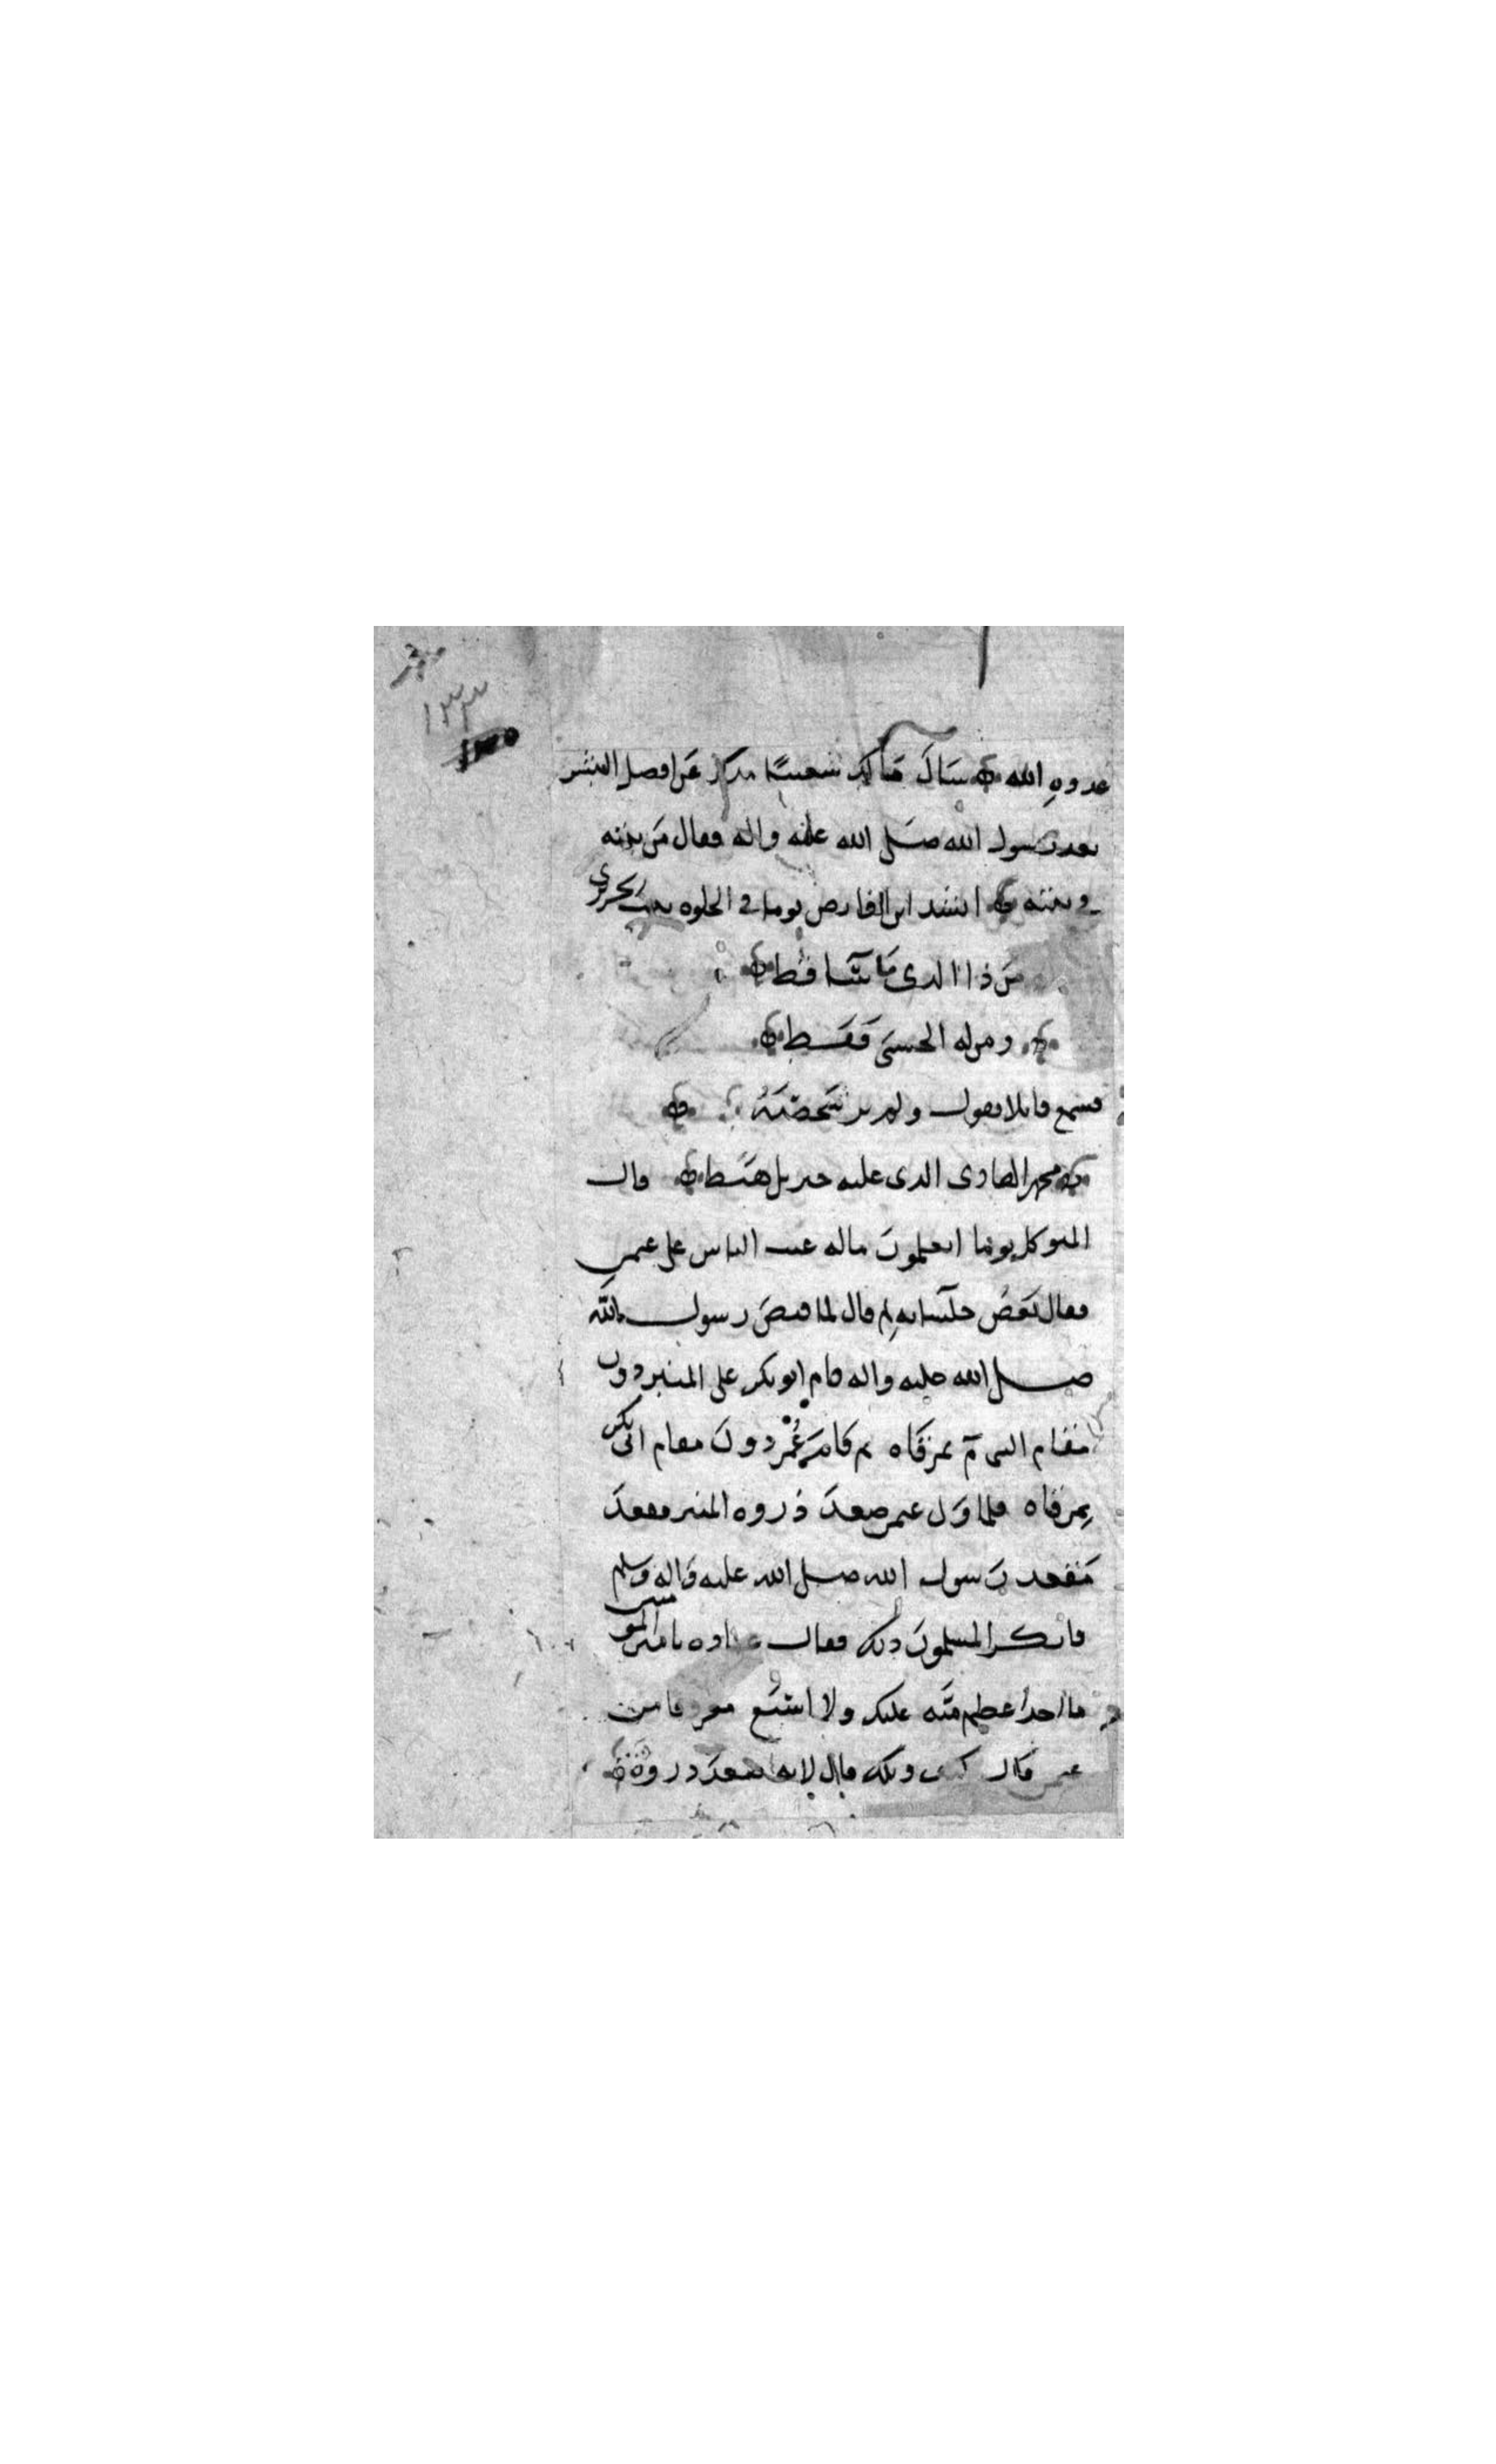 ١٣٣
عدوه الله سَالَ مالك شعيبًا عن افضل البشر
بعد رسول الله صلى الله عليه واله فقال مَن بنته
في بيته انشد ابن الفارض يوما في الخلوه بيت الحريرى
مَن ذا الذى مَا سَآ قط
ومن له الحسنى فَقَط
فسمع قايلا يقول ولم ير شخصَهُ
محمد الهادى الذى عليه جبريل هَبَط قال
المتوكل يوما اتعلمون ماله عتب الناس على عمر
فقال بَعضُ جلسايه لم قال لما قبضَ رسول الله
صلى الله عليه واله قام ابو بكر على المنبر دون
مقام النبى بمرقَاه ثم قام عُمَر دونَ مقام ابى بكر
بمرقاه فلما وَلى صعدَ ذروه المنبر فقعدَ
مَقعد رَسول الله صلى الله عليه وَاله وسلم
فانكر المسلمونَ ذلك فقال عباده يا امير المومنين
ما احد اعظم مِنَّه عليك ولا اسبَغ معروفا من
قال كيف ويلك قال لانه صعدَ ذروة